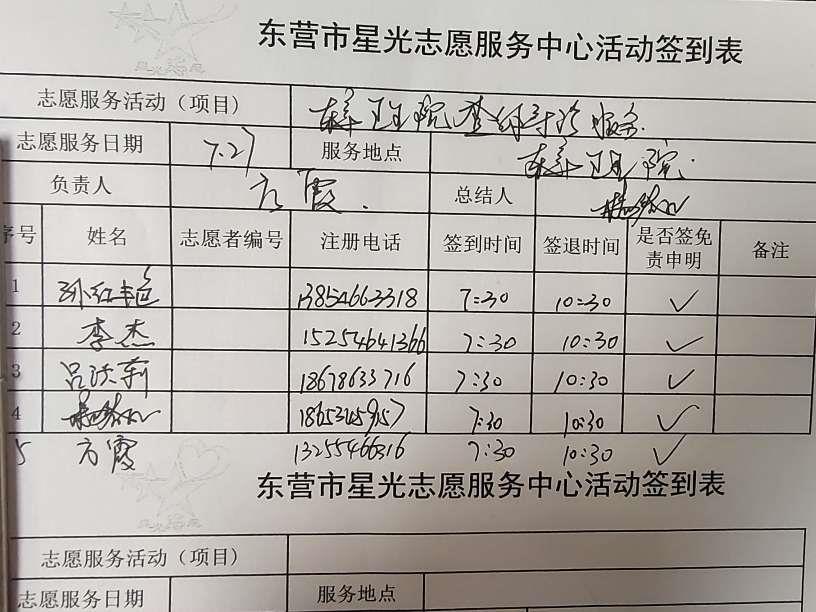 东营市星光志愿服务中心活动签到表
志愿服务活动（项目） 服务
志愿服务日期 7.27 服务地点 院
负责人 方霞. 总结人
序号 姓名 志愿者编号 注册电话 签到时间 签退时间 是否签免责申明 备注
1 孙红艳 13854663318 7:30 10:30 ✓
2 李杰 15254641366 7:30 10:30 ✓
3 吕洪莉 18678633716 7:30 10:30 ✓
4 7:30 10:30 ✓
5 方霞 13255466316 7:30 10:30 ✓
东营市星光志愿服务中心活动签到表
志愿服务活动（项目）
志愿服务日期 服务地点